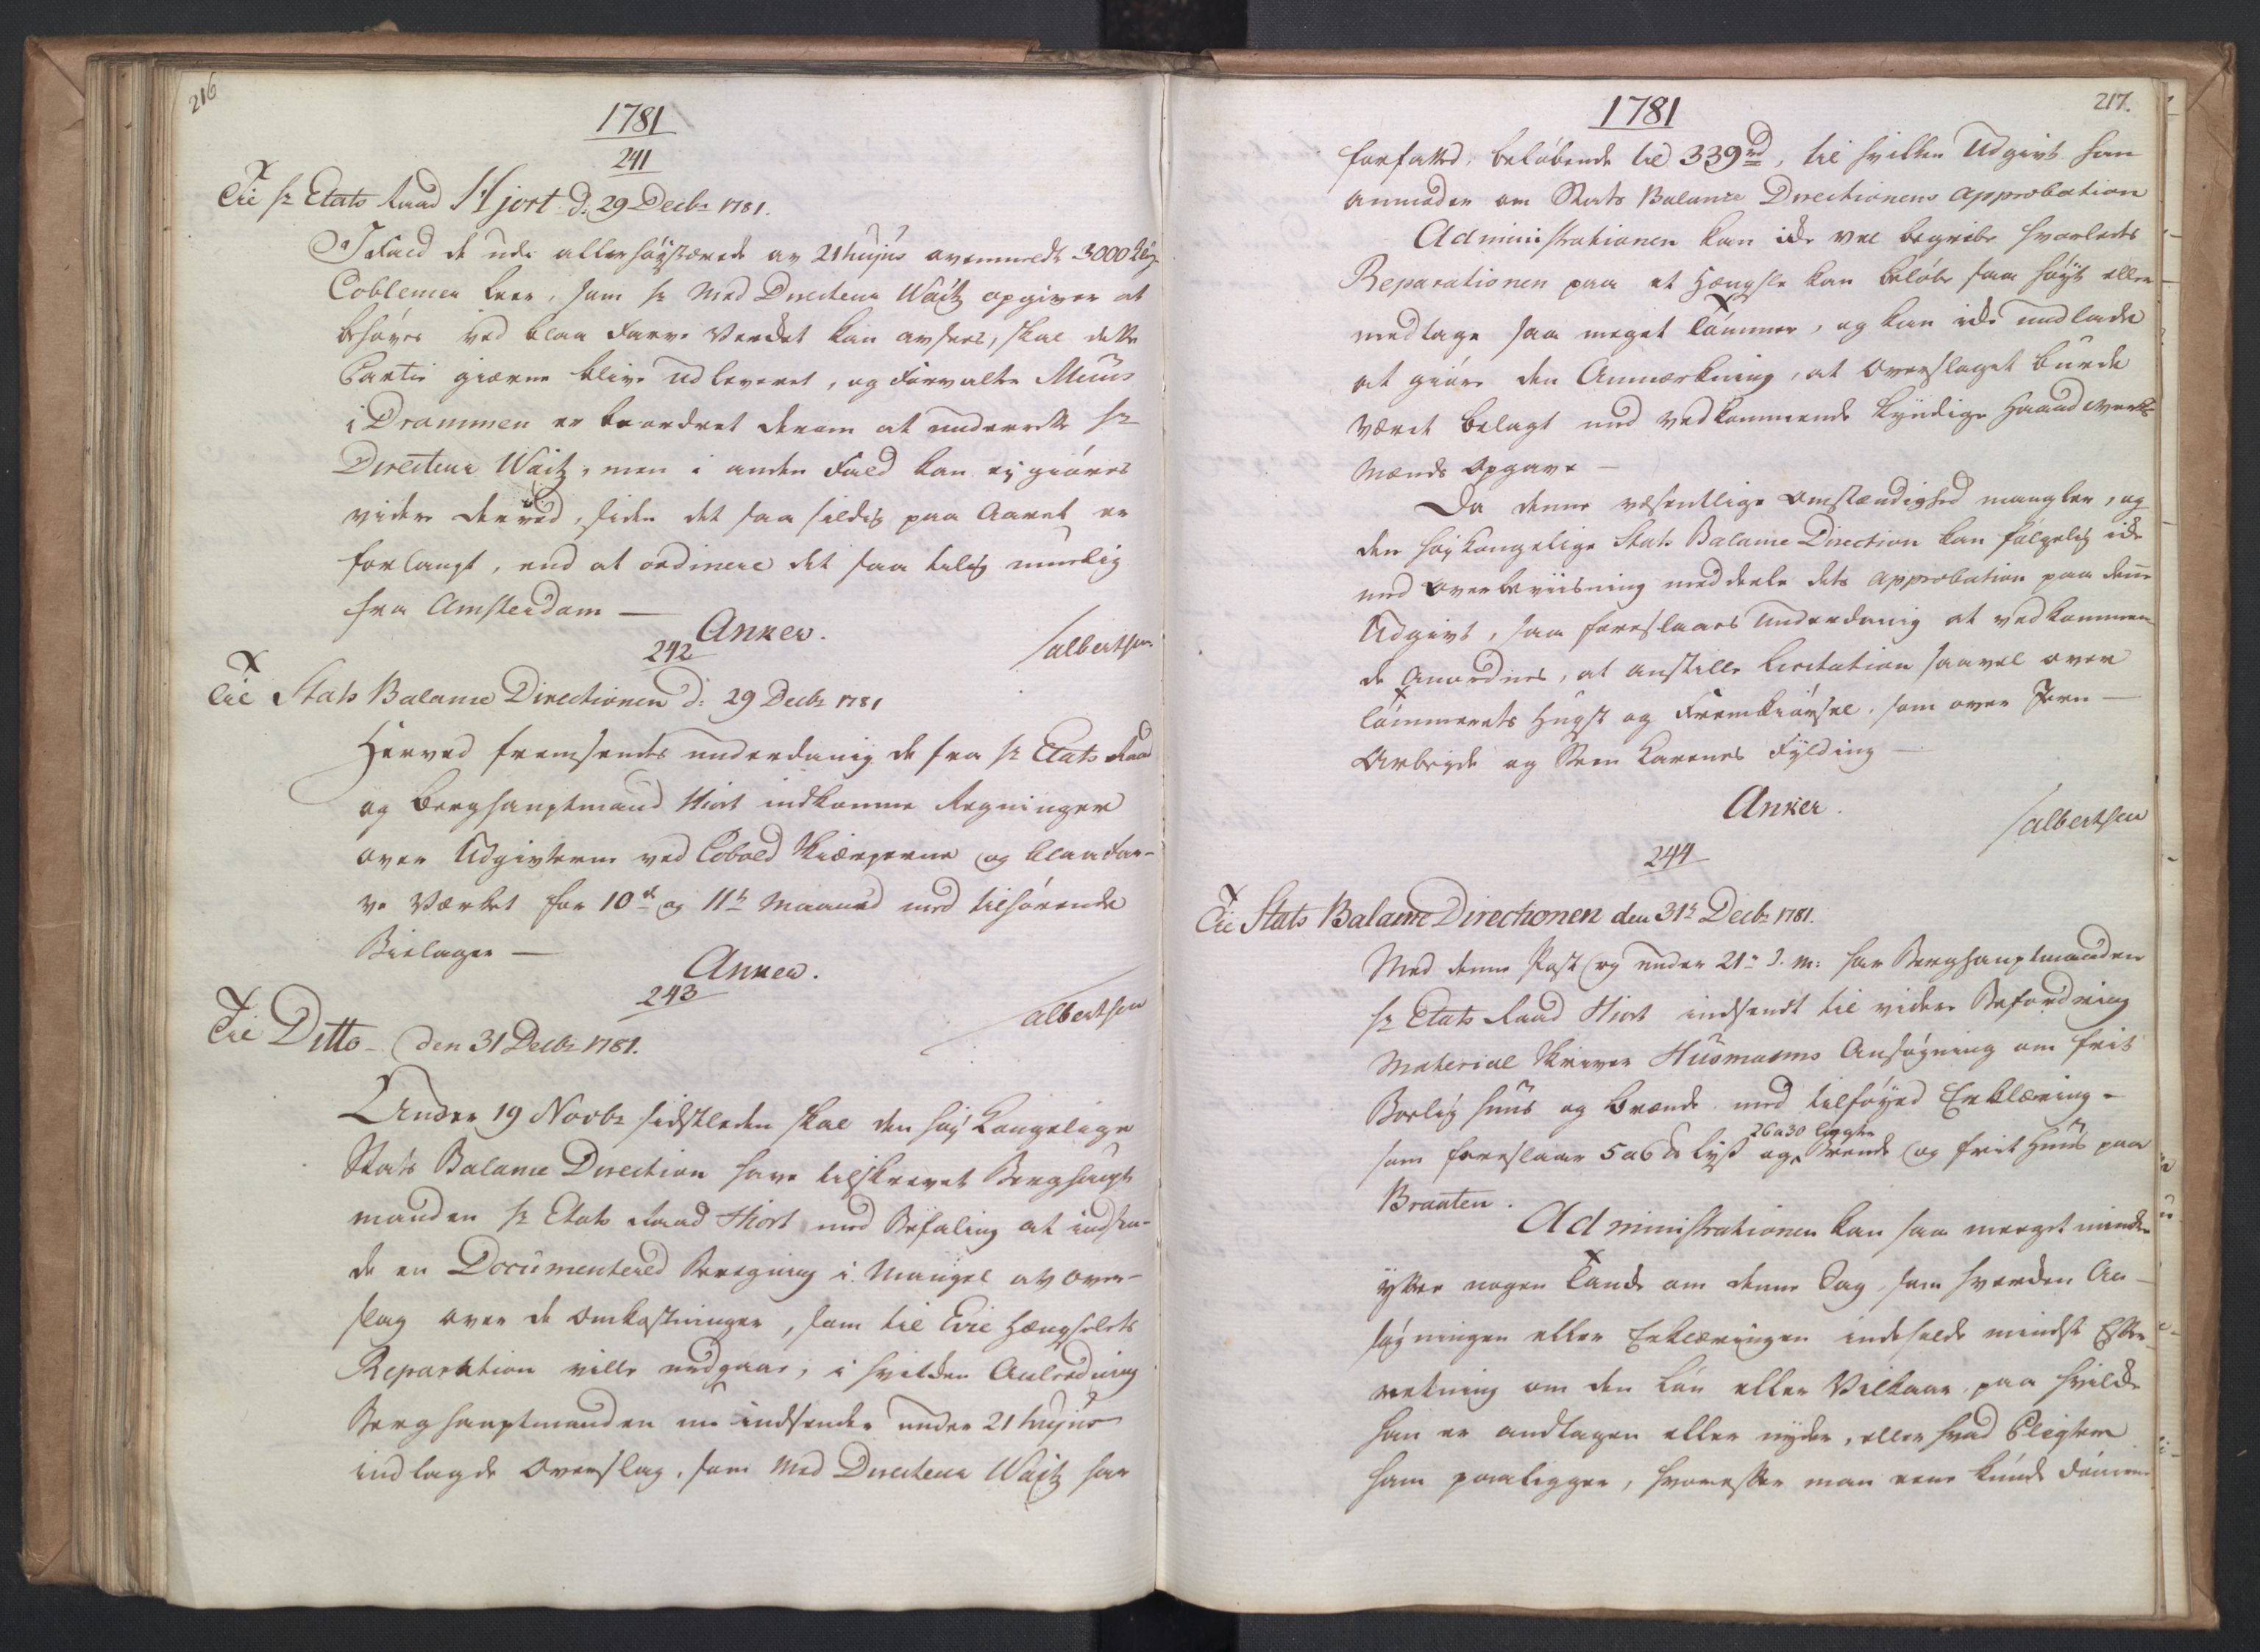 216
1781
241
Til hr Etats Raad Hjort d: 29 Decbr 1781.
I Fald de udi allerhøystærede av 21 hujus ommeldte 3000
Coblencer Leer, som hr Med Directeur Waitz opgiver at
behøves ved blaa Farve Værket kan avsees, skal dette
Partie gierne blive udleveret, og Forvalter Muus
i Drammen er beordret derom at underrette hr
Directeur Waitz, men i anden Fald kan ej giøres
videre derved, siden det saa sildig paa Aaret er
forlangt, end at ordinere det saa tilig muelig
fra Amsterdam —
Anker.
242
Jalbertsen
Til Stats Balance Directionen d: 29 Decbr 1781
Herved fremsendes underdanig de fra hr Etats Raad
og Berghauptmand Hiort indkomne Regninger
over Udgivterne ved Cobold Skiærperne og blaa Far-
ve Værket for 10de og 11te Maaned med tilhørende
Bielager —
Anker.
243
Jalbertsen
Til Ditto – den 31 Decbr 1781.
Under 19 Novbr sidstleden skal den høy Kongelige
Stats Balance Direction have tilskrevet Berghaupt
manden hr Etats Raad Hiort med Befaling at indsen-
de en Documentered Beregning i Mangel av Over-
slag over de Omkostninger, som til Evie Hængselets
Reparation ville medgaae, i hvilken Anledning
Berghauptmanden nu indsender under 21 hujus
indlagde Overslag, som Med Directeur Waitz har
217.
1781
forfatted, beløbende til 339 rd, til hvilken Udgivt han
anmoder om Stats Balance Directionens Approbation
Administrationen kan icke vel begribe hvorledes
Reparationen paa et Hængsle kan beløbe saa høyt eller
medtage saa meget Tømmer, og kan icke undlade
at giøre den Anmærkning, at Overslaget burde
været belagt med vedkommende kyndige Haandverks
Mænds Opgave —
Da denne væsentlige Omstændighed mangler, og
den høy Kongelige Stats Balance Direction kan følgelig icke
med Overbeviisning meddeele dets Approbation paa denne
Udgivt, saa foreslaaes underdanig at vedkommen-
de Anordnes, at anstille Licitation saavel over
Tømmerets Hugst og Fremkiørsel, som over Jern —
Arbeyde og Steen Karenes Fylding —
Anker.
Jalbertsen
244
Til Stats Balance Directionen den 31te Decbr 1781.
Med denne Post og under 21de d. m: har Berghauptmanden
hr Etats Raad Hiort indsendt til videre Befordring
Material Skriver Husmanns Ansøgning om frit
Boelig huus og Brænde med tilføyed Erklæring –
26 a 30
som foreslaar 5 a 6 lys og Brænde og frit Huus paa
Braaten.
Administrationen kan saa meeget mindre
yttre nogen Tanke om denne Sag, som hverken An-
søgningen eller Erklæringen indeholde mindste Efter-
retning om den Løn eller Vilkaar, paa hvilke
han er andtagen eller nyder, eller hvad Pligter
ham paaligger, hvorefter man eene kunde dømme